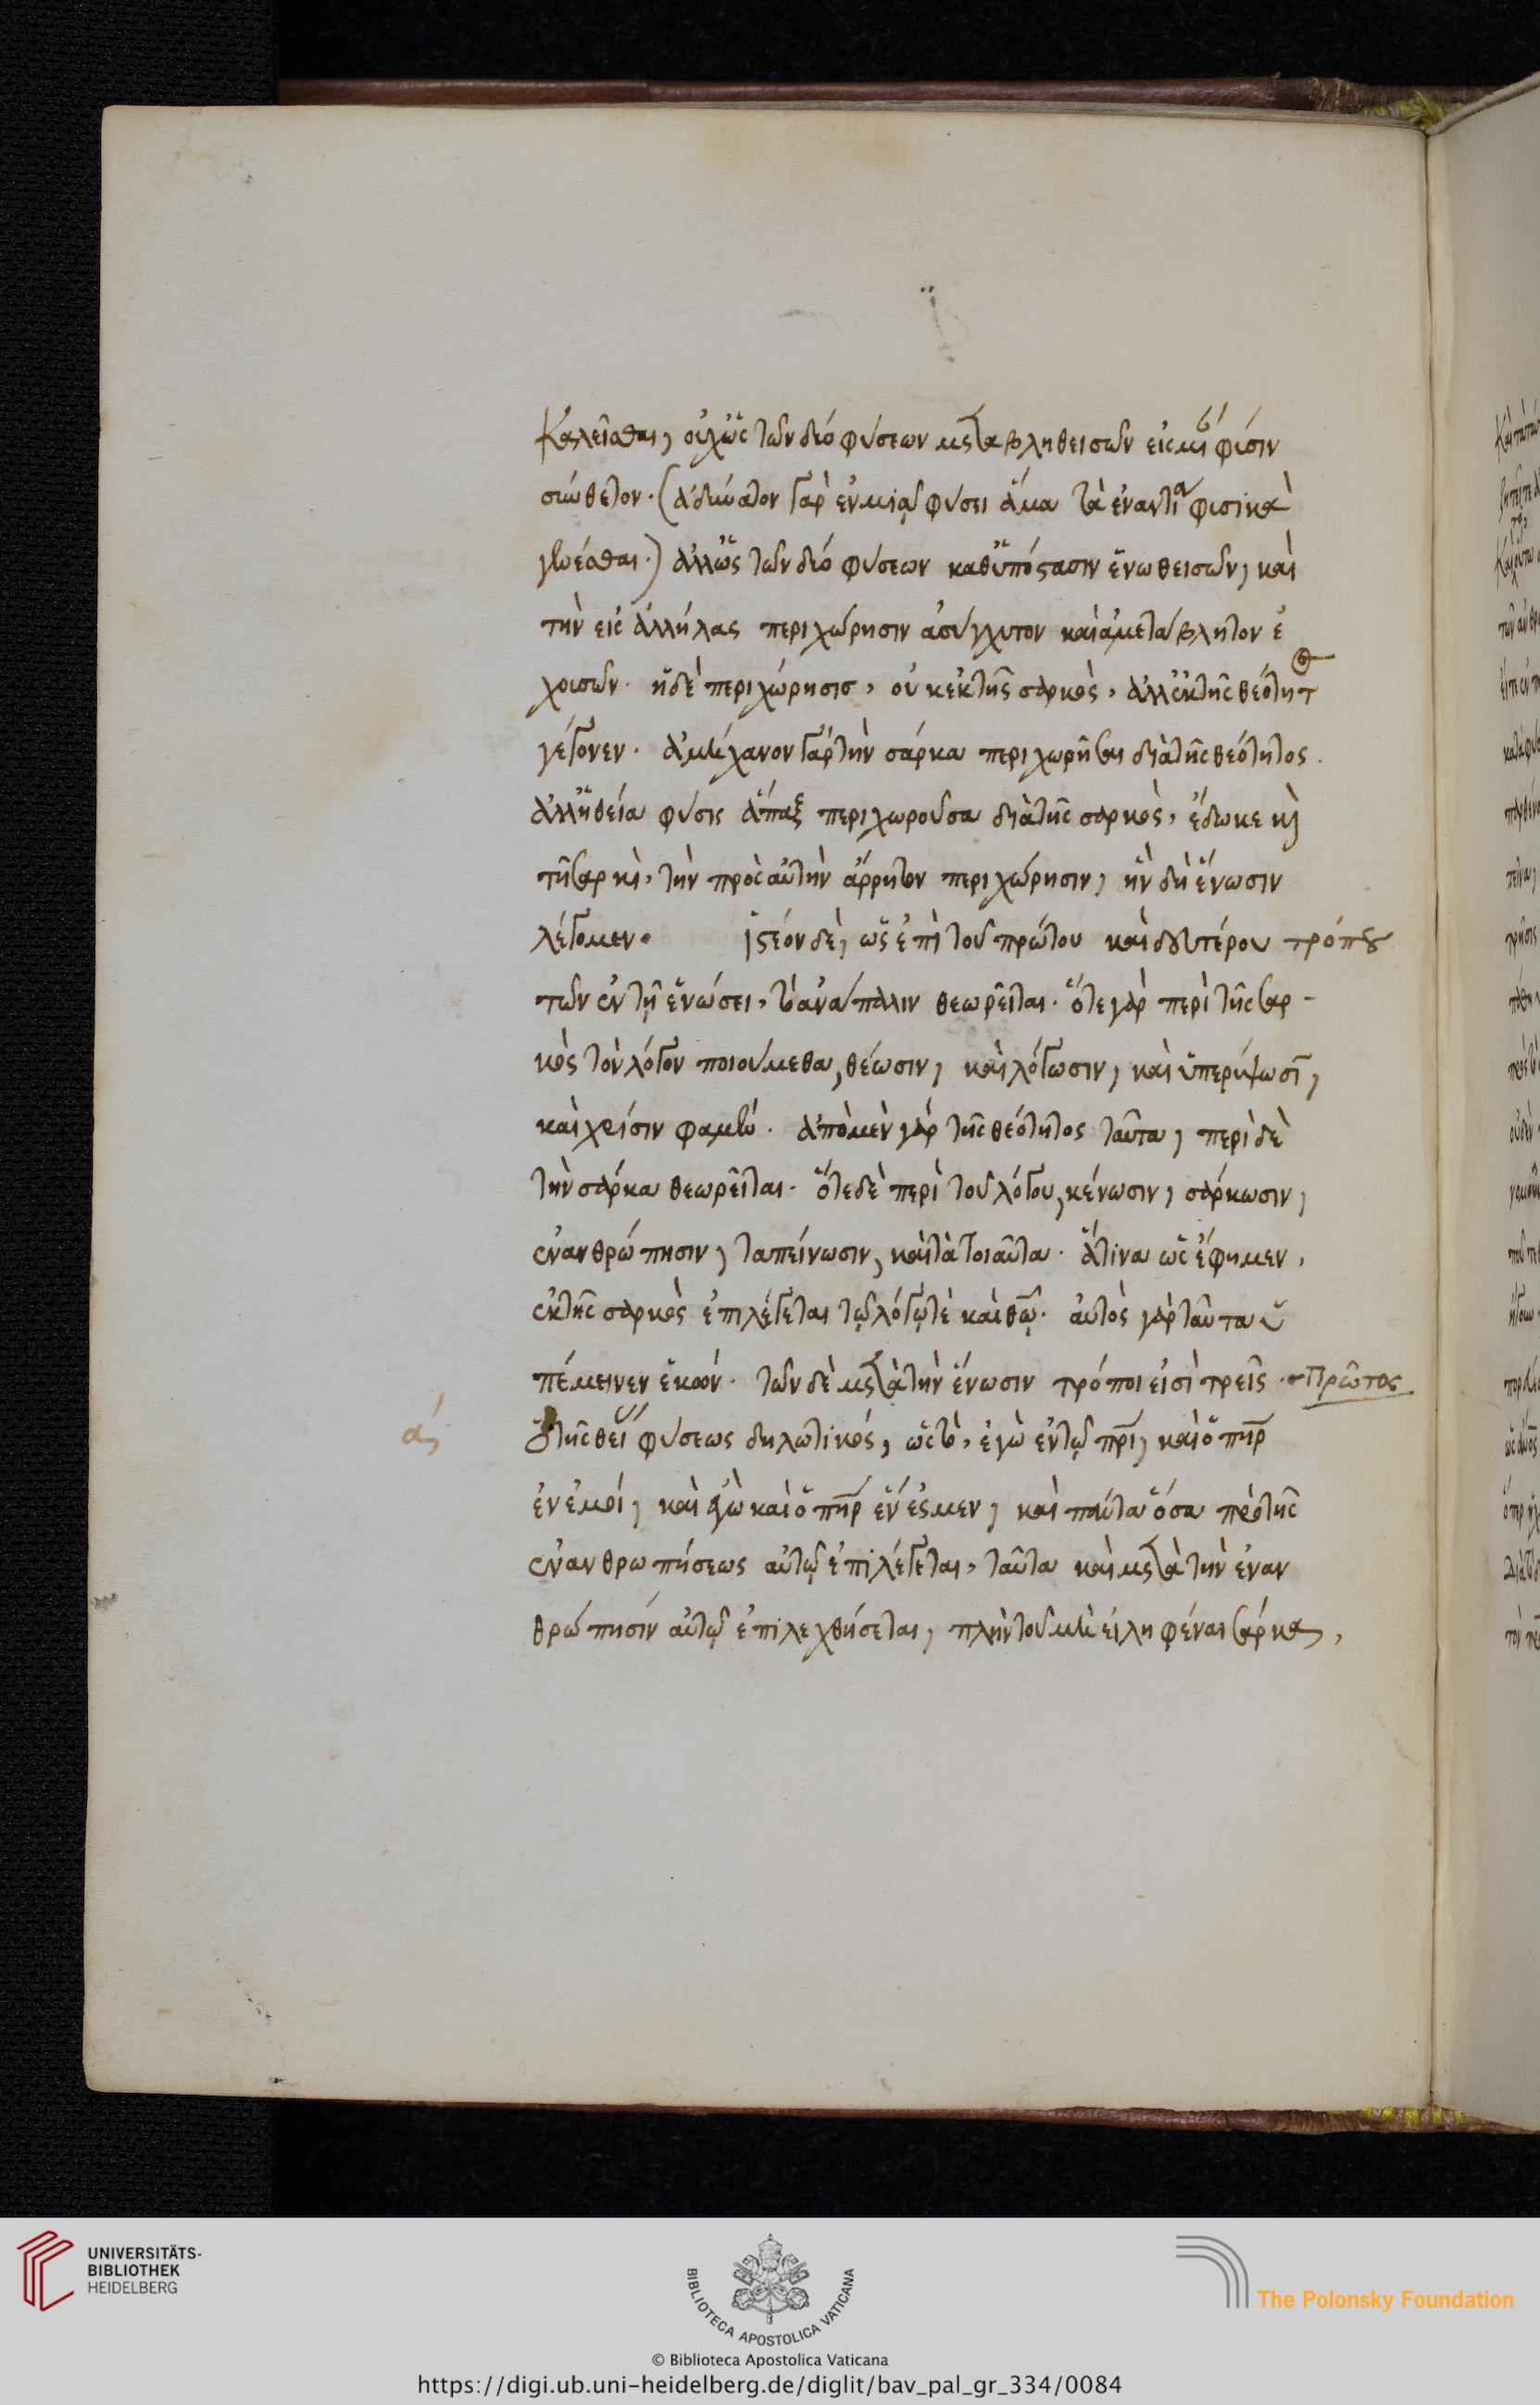 καλεῖσθαι, οὐχ ὡς τῶν δύο φύσεων μεταβληθεισῶν εἰς μίαν φύσιν
σύνθετον· (ἀδύνατον γὰρ ἐν μιᾷ φύσει ἅμα τὰ ἐναντία φυσικὰ
γενέσθαι·) ἀλλ' ὡς τῶν δύο φύσεων καθ' ὑπόστασιν ἑνωθεισῶν, καὶ
τὴν εἰς ἀλλήλας περιχώρησιν ἀσύγχυτον καὶ ἀμετάβλητον ἐ
χουσῶν· ἡ δὲ περιχώρησις, οὐκ ἐκ τῆς σαρκὸς, ἀλλ' ἐκ τῆς θεότητος
γέγονεν· ἀμήχανον γὰρ τὴν σάρκα περιχωρῆσαι διὰ τῆς θεότητος.
ἀλλ' ἡ θεία φύσις ἅπαξ περιχωροῦσα διὰ τῆς σαρκὸς, ἔδωκε καὶ
τῇ σαρκὶ, τὴν πρὸς αὐτὴν ἄρρητον περιχώρησιν, ἣν δὴ ἕνωσιν
λέγομεν· ἰστέον δὲ, ὡς ἐπὶ τοῦ πρώτου καὶ δευτέρου τρόπου
τῶν ἐν τῇ ἑνώσει, τὸ ἀνάπαλιν θεωρεῖται· ὅτε γὰρ περὶ τῆς σαρ-
κὸς τὸν λόγον ποιούμεθα, θέωσιν, καὶ λόγωσιν, καὶ ὑπερύψωσιν,
καὶ χρίσιν φαμέν· ἀπὸ μὲν γὰρ τῆς θεότητος ταῦτα, περὶ δὲ
τὴν σάρκα θεωρεῖται· ὅτε δὲ περὶ τοῦ λόγου, κένωσιν, σάρκωσιν,
ἐνανθρώπησιν, ταπείνωσιν, καὶ τὰ τοιαῦτα· ἅτινα ὡς ἔφημεν,
ἐκ τῆς σαρκὸς ἐπιλέγεται τῷ λόγῳ τὲ καὶ θῷ· αὐτὸς γὰρ ταῦτα ὑ
πέμεινεν ἑκών· τῶν δὲ μετὰ τὴν ἕνωσιν τρόποι εἰσὶ τρεῖς· Πρῶτος
α' ὁ τῆς θείας φύσεως δηλωτικός, ὡς τὸ, ἐγὼ ἐν τῷ πρι, καὶ ὁ πηρ
ἐν ἐμοί, καὶ ἐγὼ καὶ ὁ πηρ ἕν ἐσμεν, καὶ πάντα ὅσα πρὸ τῆς
ἐνανθρωπήσεως αὐτῷ ἐπιλέγεται, ταῦτα καὶ μετὰ τὴν ἐναν
θρώπησιν αὐτῷ ἐπιλεχθήσεται, πλὴν τοῦ μὴ εἰληφέναι σάρκα,
UNIVERSITÄTS-
BIBLIOTHEK
HEIDELBERG
BIBLIOTECA APOSTOLICA VATICANA
The Polonsky Foundation
© Biblioteca Apostolica Vaticana
https://digi.ub.uni-heidelberg.de/diglit/bav_pal_gr_334/0084